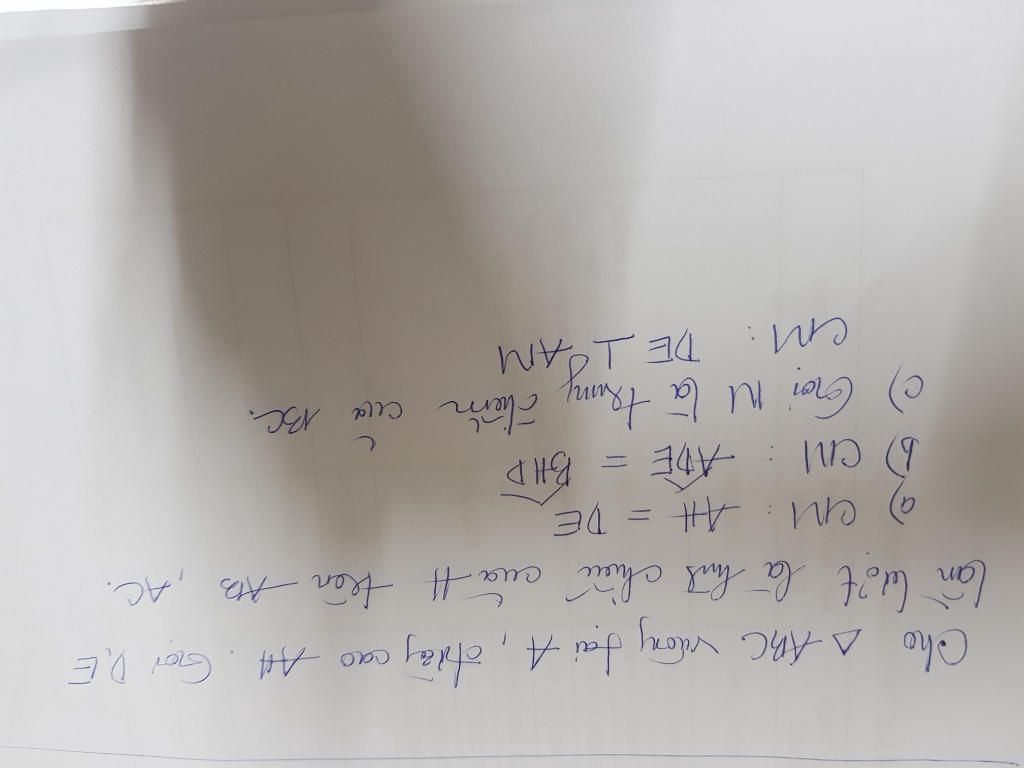 Cho △ ABC vuông tại A, đường cao AH. Gọi D, E
lần lượt là hình chiếu của H trên AB, AC.
a) CM : AH = DE
b) CM : \widehat{ADE} = \widehat{BHD}
c) Gọi M là trung điểm của BC.
CM : DE ⊥ AM